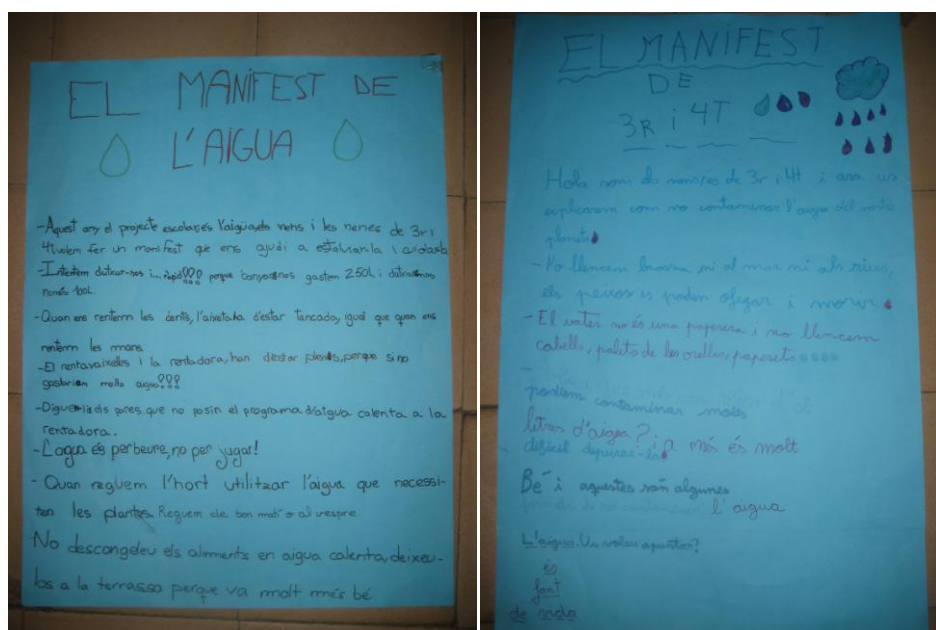 EL MANIFEST DE
L'AIGUA
-Aquest any el projecte escolar es l'aigua, els nens i les nenes de 3r i
4t volem fer un manifest que ens ajudi a estalviar-la i cuidarla
-Intentem dutxar-nos i... ràpid!!! perque banyar-nos gastem 250L i dutxar-nos
només 100L.
-Quan ens rentem les dents, l'aixeta ha d'estar tancada, igual que quan ens
rentem les mans.
-El rentavaixelles i la rentadora, han d'estar plens, perque si no
gastarien molta aigua!!!
-Digueu-li als pares que no posin el programa d'aigua calenta a la
rentadora.
-L'aigua és per beure, no per jugar!
- Quan reguem l'hort utilitzar l'aigua que necessi-
ten les plantes. Reguem de bon matí o al vespre.
No descongeleu els aliments en aigua calenta, deixeu-
los a la terrassa perque va molt més bé
EL MANIFEST
DE
3R i 4T
Hola som els nens/es de 3r i 4t i ara us
explicarem com no contaminar l'aigua del nostre
planeta
-No llencem brossa ni al mar ni als rius,
els peixos es poden ofegar i morir.
-El vater no és una paperera i no llencem
cabells, palets de les orelles, paperets
podem contaminar molts
litres d'aigua? i a més és molt
difícil depurar-la
Bé i aquestes són algunes
l'aigua
L'aigua. Us voleu apuntar?
és
font
de vida